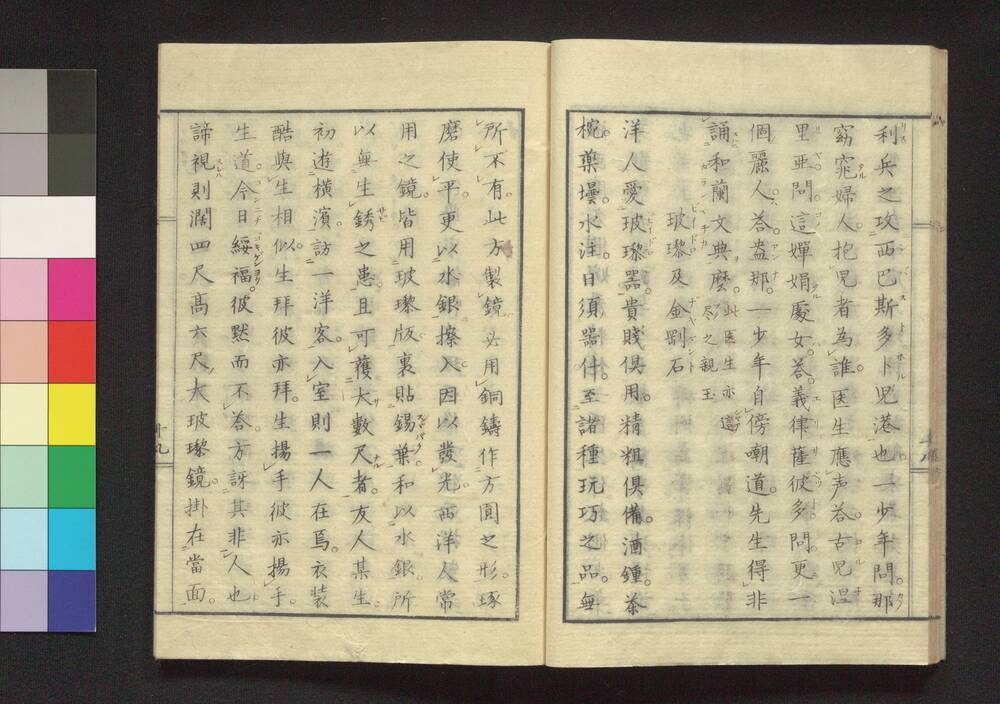 利兵之攻西巴斯多卜児港也一少年問。那
窈窕婦人。抱児者為誰。医生應声荅。古児涅
里亜。問。這嬋娟處女。荅。義律薩彼多。問。更一
個麗人。荅。盎那。一少年自傍嘲道。先生得非
誦和蘭文典麼。此医生亦
尽之親玉
玻瓈及金剛石
洋人愛玻瓈器。貴賤倶用。精粗倶備。酒鍾。茶
椀。薬壜。水注。日須器什。至諸種玩巧之品。無
所不有。此方製鏡必用銅鑄作。方圓之形。琢
磨使平。更以水銀擦入。因以發光。西洋人常
用之鏡。皆用玻瓈版。裏貼錫葉。和以水銀。所
以無生銹之患。且可獲大數尺者。友人某生
初遊横濱。訪一洋客。入室則一人在焉。衣装
酷與生相似。生拜彼亦拜。生揚手彼亦揚手。
生道。今日綏福。彼黙而不荅。方訝其非人也
諦視則濶四尺髙六尺。大玻瓈鏡。掛在當面。
十九